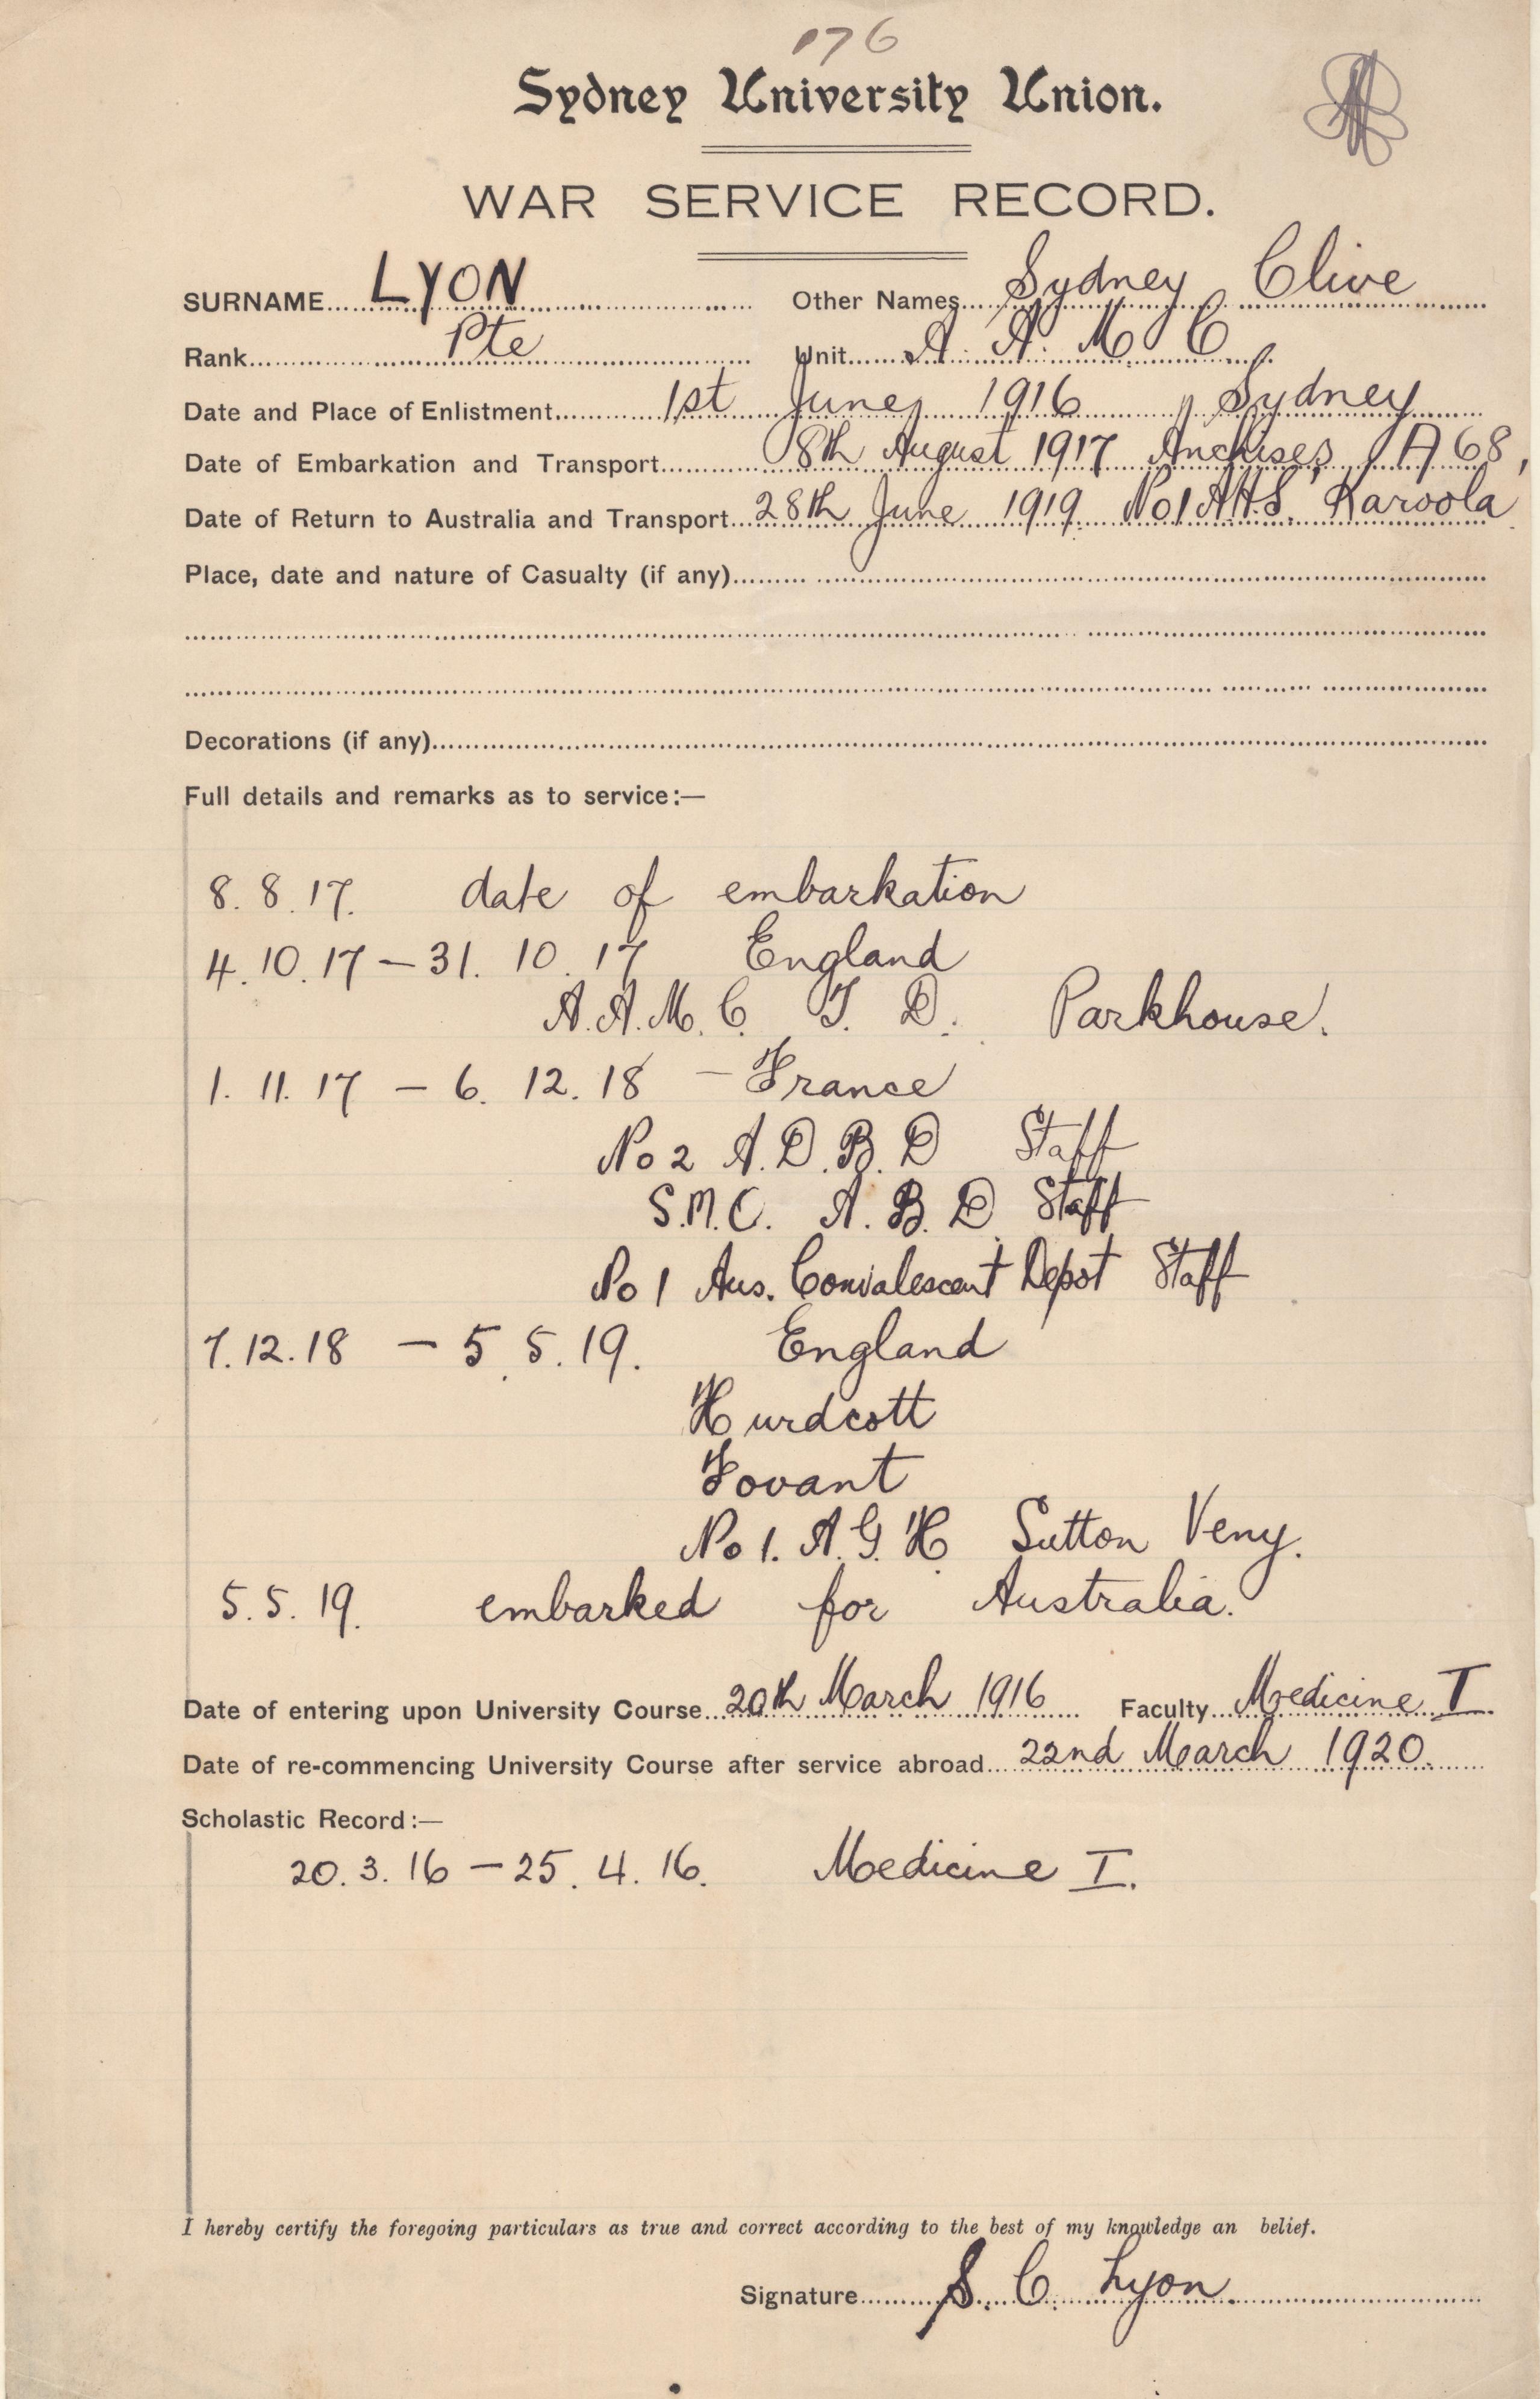 176
Sydney University Union.
WAR SERVICE RECORD.
SURNAME LYON Other Names Sydney Clive
Rank Pte Unit A. A. M. C.
Date and Place of Enlistment 1st June, 1916, Sydney
Date of Embarkation and Transport 8th August 1917 Anchises, A 68,
Date of Return to Australia and Transport 28th June 1919 No 1 A.H.S. Karoola.
Place, date and nature of Casualty (if any)
Decorations (if any)
Full details and remarks as to service:—
8. 8. 17. date of embarkation
4. 10. 17 – 31. 10. 17 England
A. A. M. C. T. D. Parkhouse.
1. 11. 17 – 6. 12. 18 – France
No 2 A. D. B. D Staff
S.M.C. A. B. D Staff
No 1 Aus. Convalescent Depot Staff
7. 12. 18 – 5. 5. 19. England
Hurdcott
Fovant
No 1. A. G. H Sutton Veny.
5. 5. 19. embarked for Australia.
Date of entering upon University Course 20th March 1916 Faculty Medicine I.
Date of re-commencing University Course after service abroad 22nd March 1920.
Scholastic Record:—
20. 3. 16 – 25. 4. 16. Medicine I.
I hereby certify the foregoing particulars as true and correct according to the best of my knowledge an belief.
Signature S. C. Lyon.